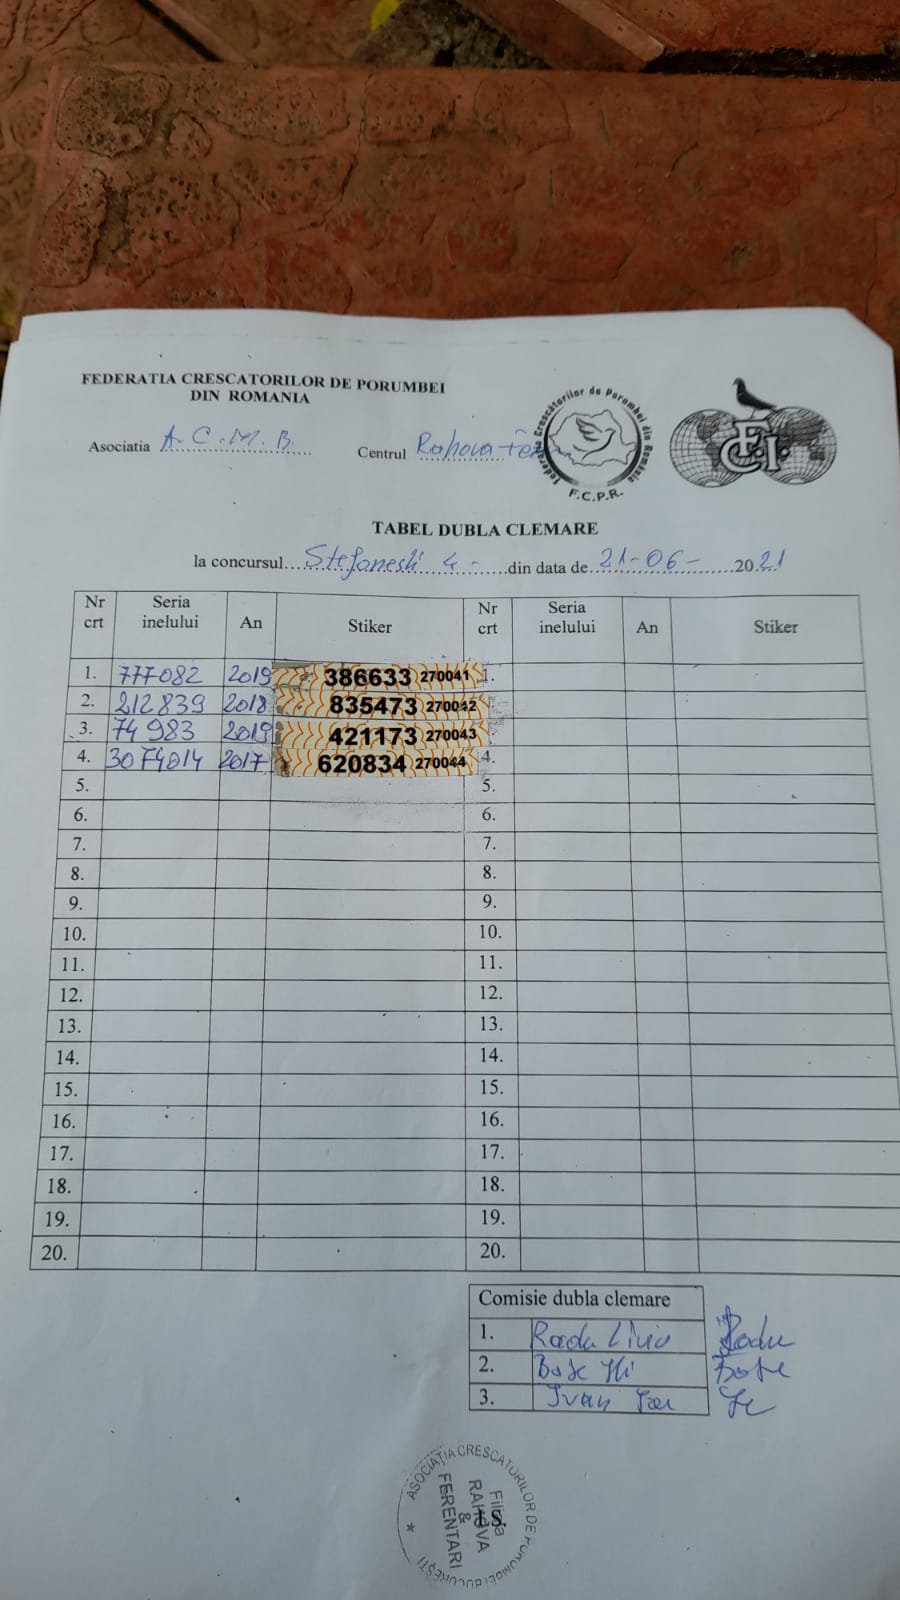 FEDERATIA CRESCATORILOR DE PORUMBEI
DIN ROMANIA
Asociatia A.C.M.B.
Centrul Rahova-Fe
Federatia Crescătorilor de Porumbei din România
F.C.P.R.
F.C.I.
TABEL DUBLA CLEMARE
la concursul Stefanesti 4 - din data de 21-06- 2021
Nr crt Seria inelului An Stiker Nr crt Seria inelului An Stiker
1. 777082 2019 386633 270041 1.
2. 212839 2018 835473 270042
3. 74983 2019 421173 270043
4. 3074014 2017 620834 270044 4.
5. 5.
6. 6.
7. 7.
8. 8.
9. 9.
10. 10.
11. 11.
12. 12.
13. 13.
14. 14.
15. 15.
16. 16.
17. 17.
18. 18.
19. 19.
20. 20.
Comisie dubla clemare
1. Radu Liviu Radu
2. Bote
3. Ivan
ASOCIAȚIA CRESCATORILOR DE PORUMBEI BUCUREȘTI
Filiala
RAHOVA
&
FERENTARI